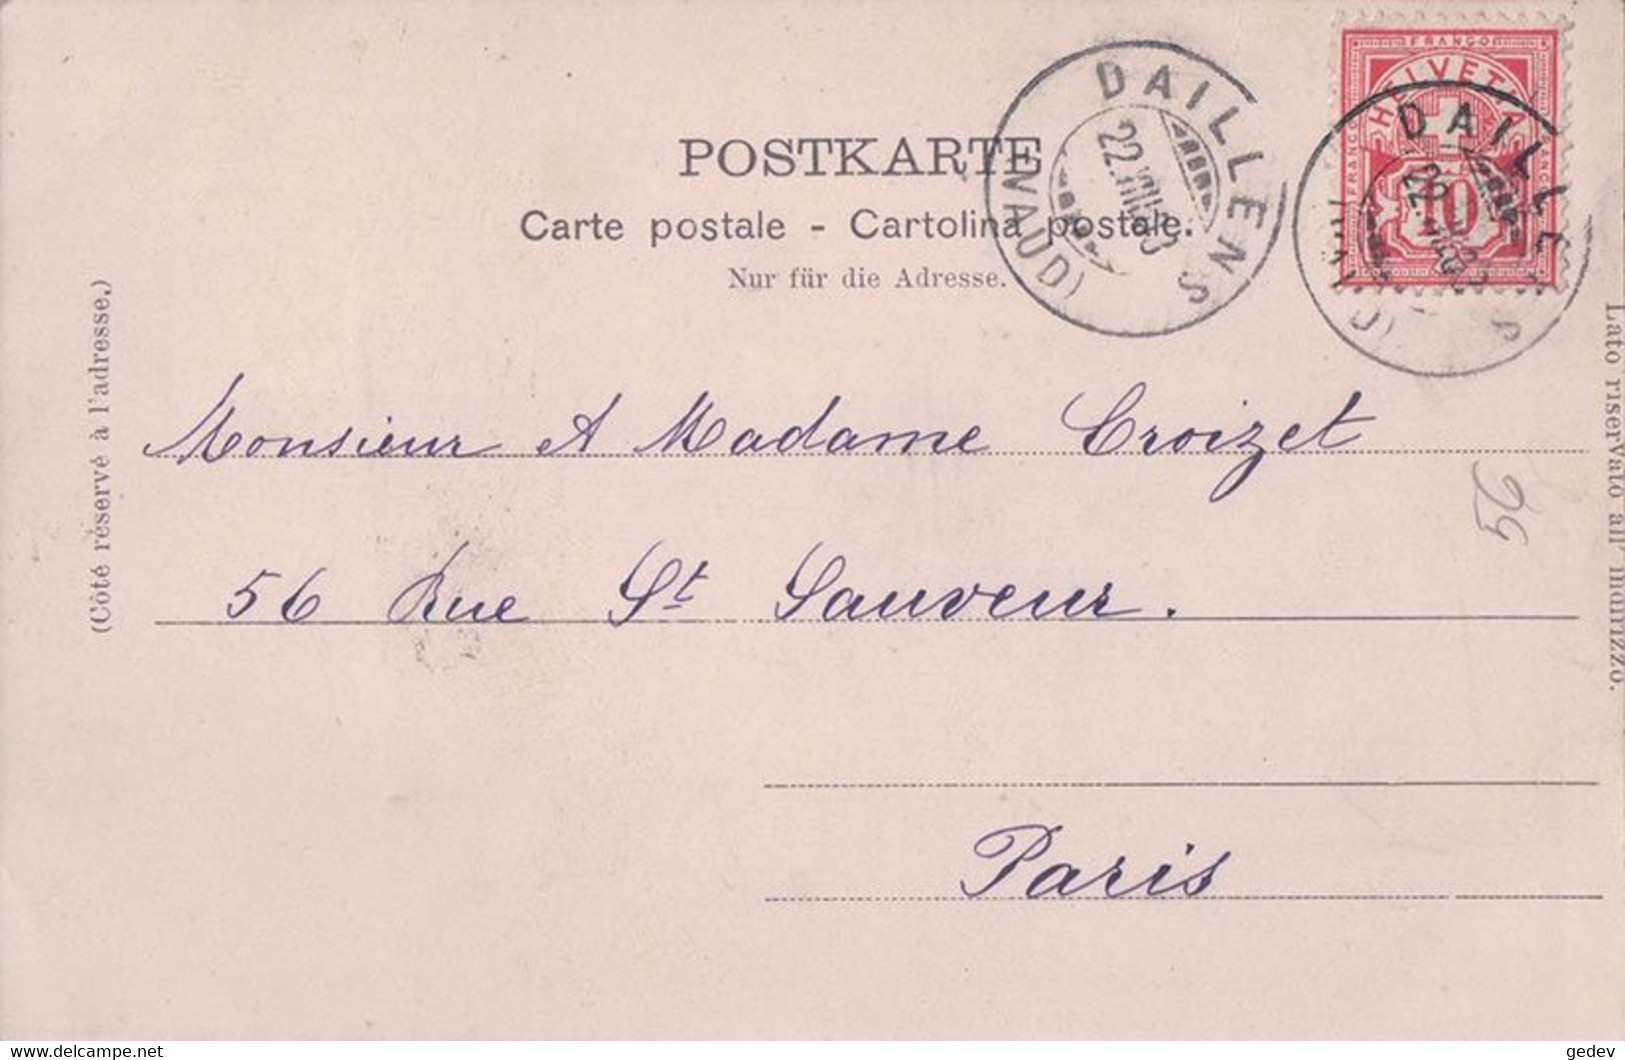 POSTKARTE
Carte postale - Cartolina postale.
Nur für die Adresse.
DAILLENS
(VAUD)
FRANCO
HELVETIA
FRANCO
FRANCO
10
DAILLENS
(Côté réservé à l'adresse.)
Lato riservato all' indirizzo.
Monsieur et Madame Croizet
56 Rue St Sauveur.
Paris
56
delcampe.net
gedev